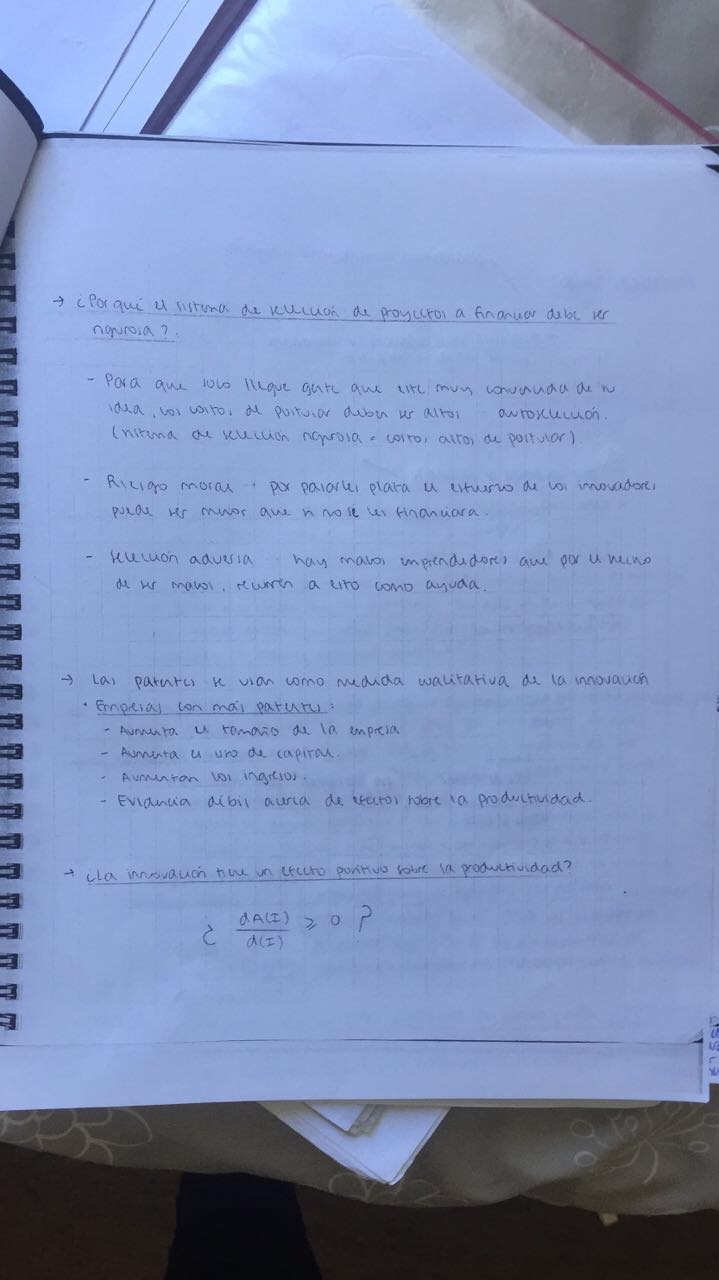 → ¿Por qué el sistema de selección de proyectos a financiar debe ser
rigurosa?.
- Para que solo llegue gente que esté muy convencida de su
idea, los costos de postular deben ser altos → autoselección.
(sistema de selección rigurosa = costos altos de postular)
- Riesgo moral → por pasarles plata el esfuerzo de los innovadores
puede ser menor que si no se les financiara.
- Selección adversa → hay malos emprendedores que por el hecho
de ser malos, recurren a esto como ayuda.
→ Las patentes se usan como medida cualitativa de la innovación
• Empresas con más patentes:
- Aumenta el tamaño de la empresa
- Aumenta el uso de capital.
- Aumentan los ingresos.
- Evidencia débil acerca de efectos sobre la productividad.
→ ¿La innovación tiene un efecto positivo sobre la productividad?
¿ dA(I)/d(I) ≥ 0 ?